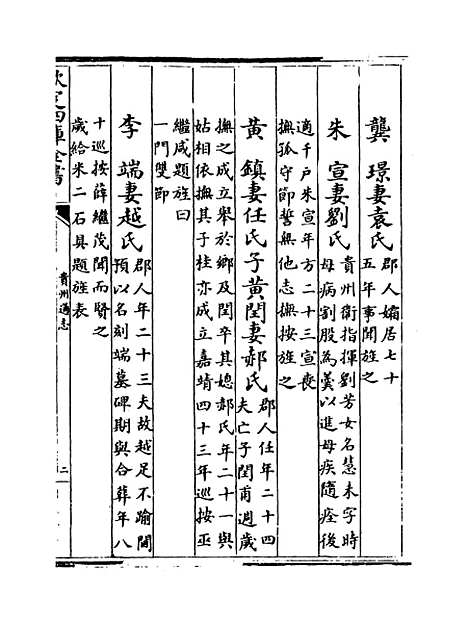 龔璟妻袁氏郡人孀居七十
五年事聞旌之
朱宣妻劉氏貴州衛指揮劉芳女名慧未字時
母病割股為羹以進母疾隨痊後
適千户朱宣年方二十三宣喪
撫孤守節誓無他志撫按旌之
黄鎮妻任氏子黄閏妻郝氏郡人任年二十四
夫亡子閏甫週歲
撫之成立舉於鄉及閏卒其媳郝氏年二十一與
姑相依撫其子桂亦成立嘉靖四十三年巡按巫
繼咸題旌曰
一門雙節
李端妻越氏郡人年二十三夫故越足不踰閫
預以名刻端墓碑期與合葬年八
十巡按薛繼茂聞而賢之
歲給米二石具題旌表
欽定四庫全書
貴州通志
二